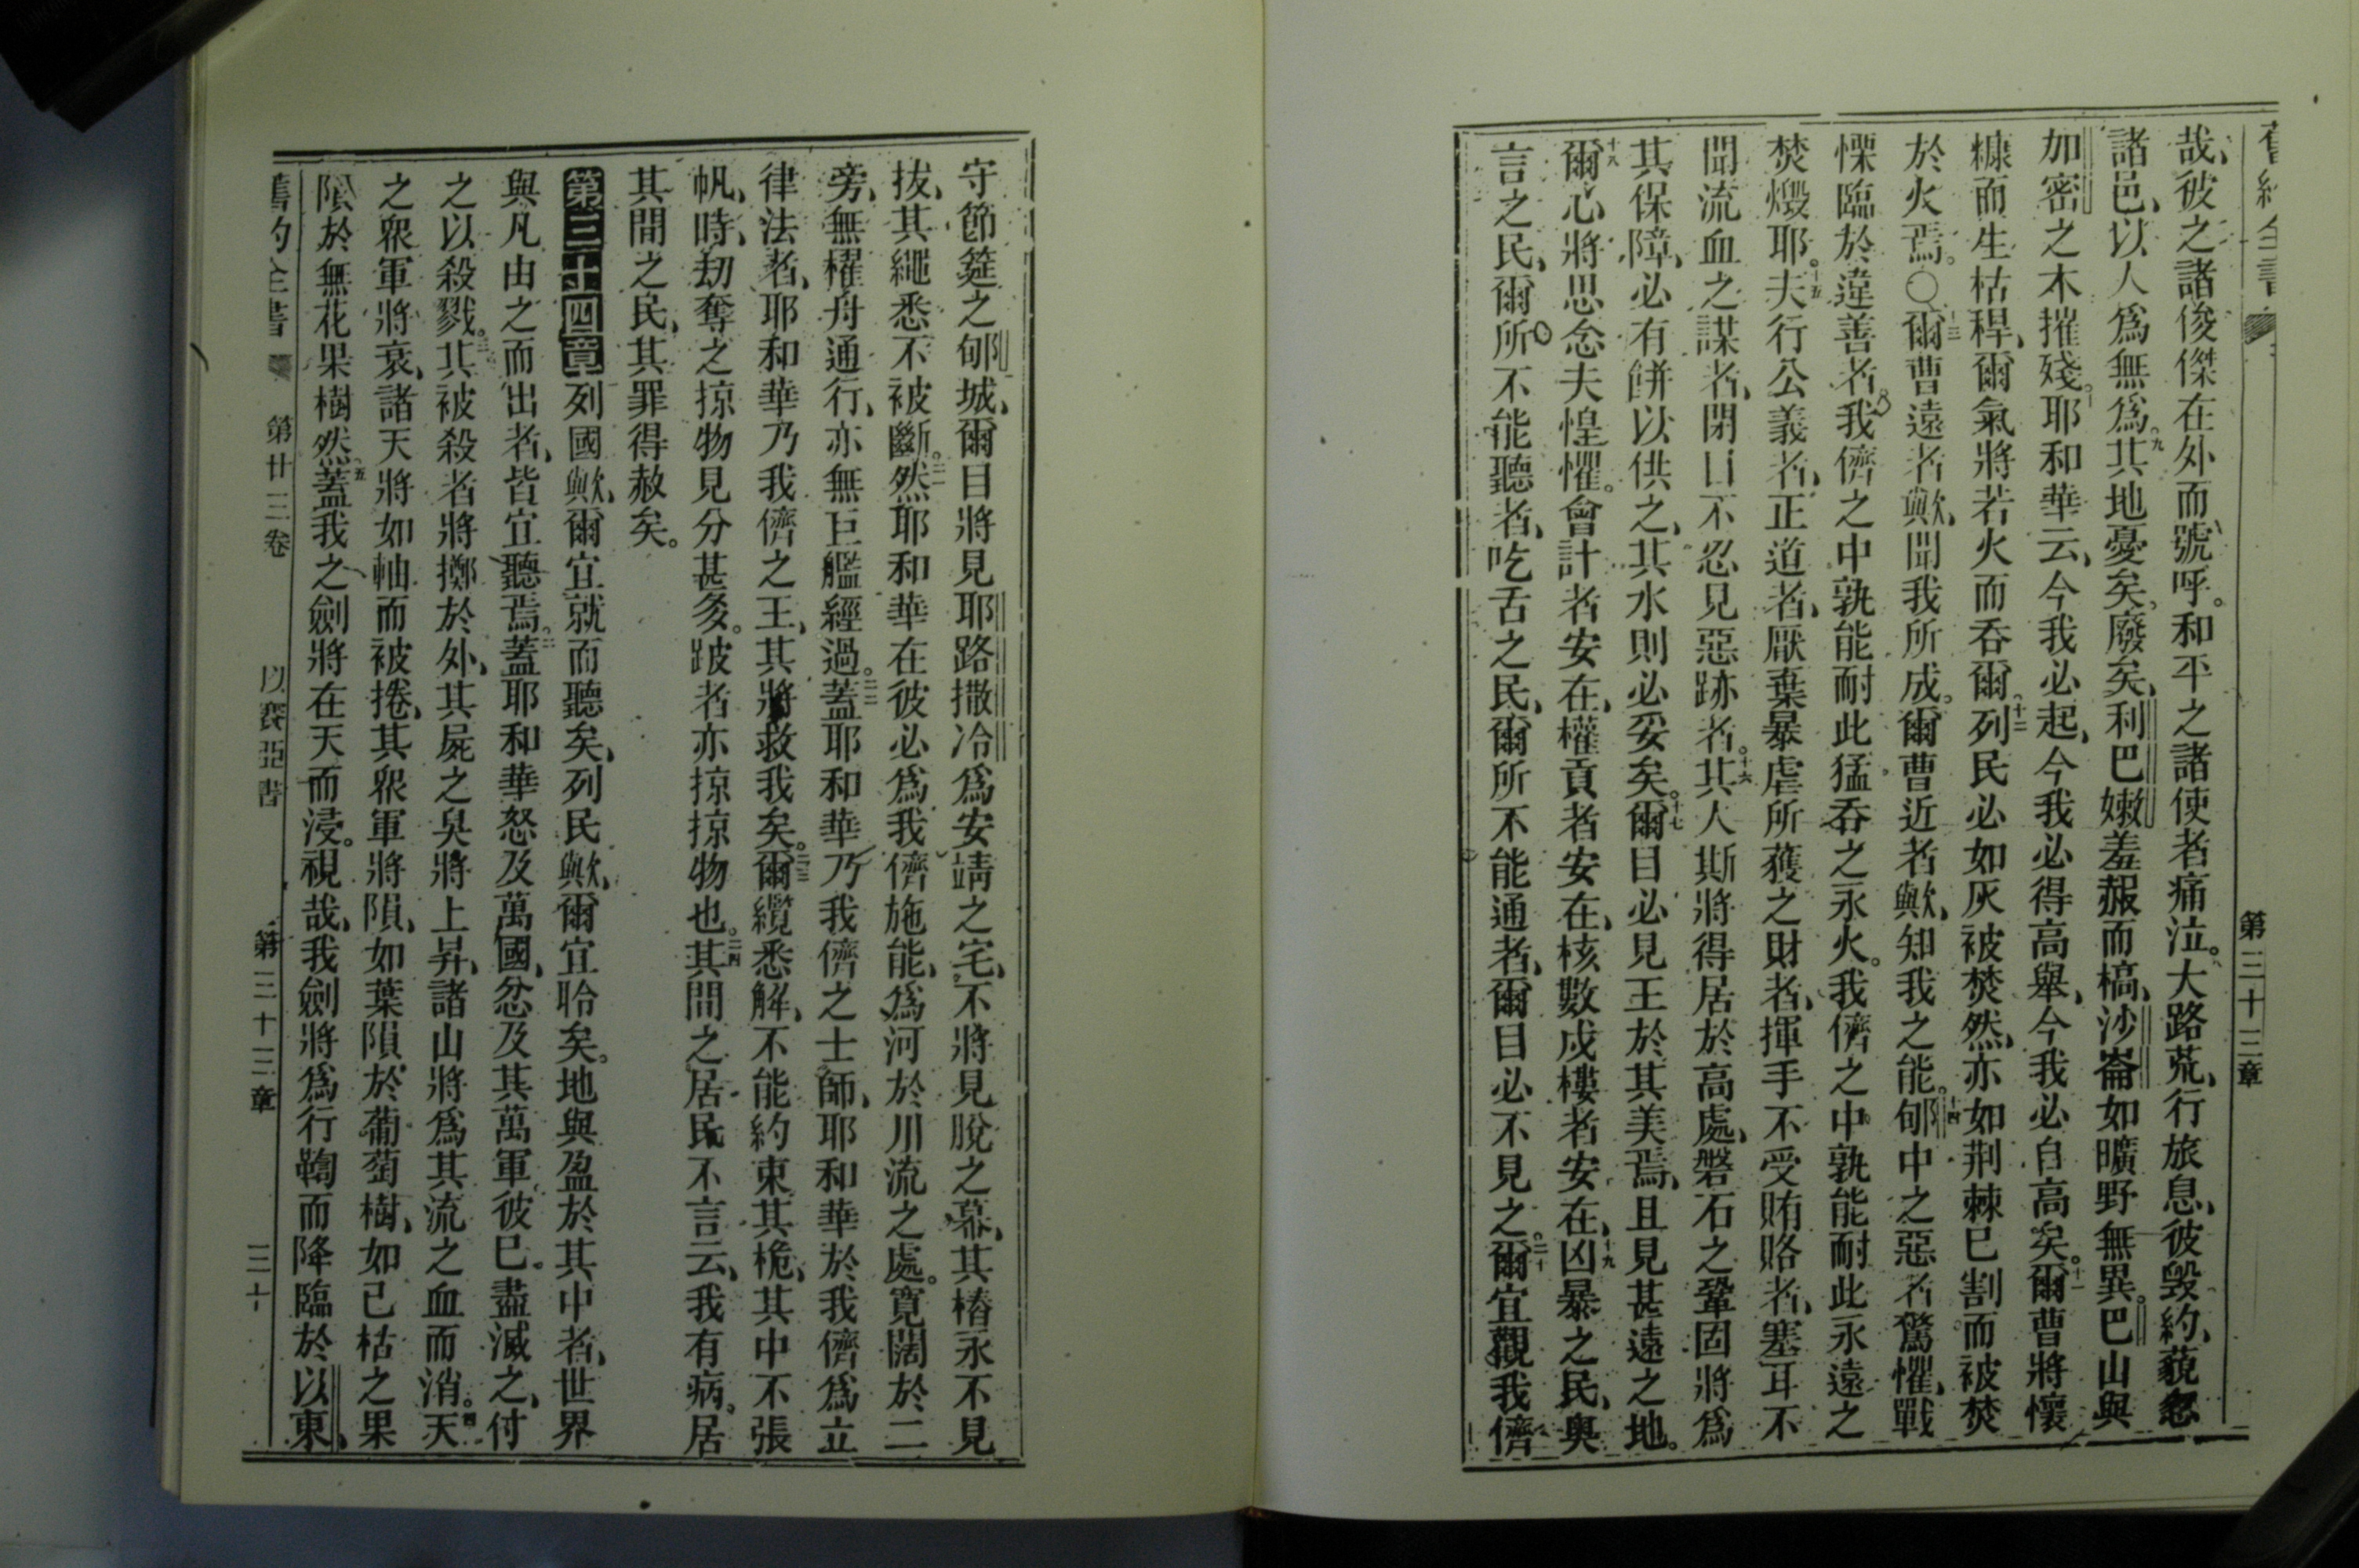 舊約全書
第三十三章
哉、彼之諸俊傑在外而號呼。和平之諸使者痛泣。八大路荒、行旅息、彼毀約、藐忽
諸邑、以人爲無爲。九其地憂矣、廢矣、利巴嫩羞赧而槁、沙崙如曠野無異。巴山與
加密之木摧殘。十耶和華云、今我必起、今我必得高舉、今我必自高矣。十一爾曹將懷
糠而生枯稈、爾氣將若火而吞爾。十二列民必如灰被焚然、亦如荆棘已割而被焚
於火焉。〇十三爾曹遠者歟、聞我所成。爾曹近者歟、知我之能。十四郇中之惡者驚懼、戰
慄臨於違善者。我儕之中孰能耐此猛吞之永火。我儕之中孰能耐此永遠之
焚燬耶。十五夫行公義者、正道者、厭棄暴虐所獲之財者、揮手不受賄賂者、塞耳不
聞流血之謀者、閉目不忍見惡跡者。十六其人斯將得居於高處、磐石之鞏固將爲
其保障、必有餅以供之、其水則必妥矣。十七爾目必見王於其美焉、且見甚遠之地。
十八爾心將思念夫惶懼。會計者安在、權貢者安在、核數戍樓者安在、十九凶暴之民、奥
言之民、爾所不能聽者、吃舌之民、爾所不能通者、爾目必不見之。二十爾宜觀我儕
守節筵之郇城、爾目將見耶路撒冷爲安靖之宅、不將見脫之幕、其樁永不見
拔、其繩悉不被斷。二一然耶和華在彼必爲我儕施能、爲河於川流之處。寬闊於二
旁、無櫂舟通行、亦無巨艦經過。二二蓋耶和華乃我儕之士師、耶和華於我儕爲立
律法者、耶和華乃我儕之王、其將救我矣。二三爾纜悉解、不能約束其桅、其中不張
帆、時、刧奪之掠物見分甚多。跛者亦掠掠物也。二四其間之居民不言云、我有病。居
其間之民、其罪得赦矣。
第三十四章列國歟、爾宜就而聽矣、列民歟、爾宜聆矣。地與盈於其中者、世界
與凡由之而出者、皆宜聽焉。二蓋耶和華怒及萬國、忿及其萬軍。彼已盡滅之、付
之以殺戮。三其被殺者將擲於外、其屍之臭將上昇、諸山將爲其流之血而消。四天
之衆軍將衰、諸天將如軸而被捲、其衆軍將隕、如葉隕於葡萄樹、如已枯之果
隕於無花果樹然。五蓋我之劍將在天而浸。視哉、我劍將爲行鞫而降臨於以東、
舊約全書 第廿三卷 以賽亞書 第三十三章 三十